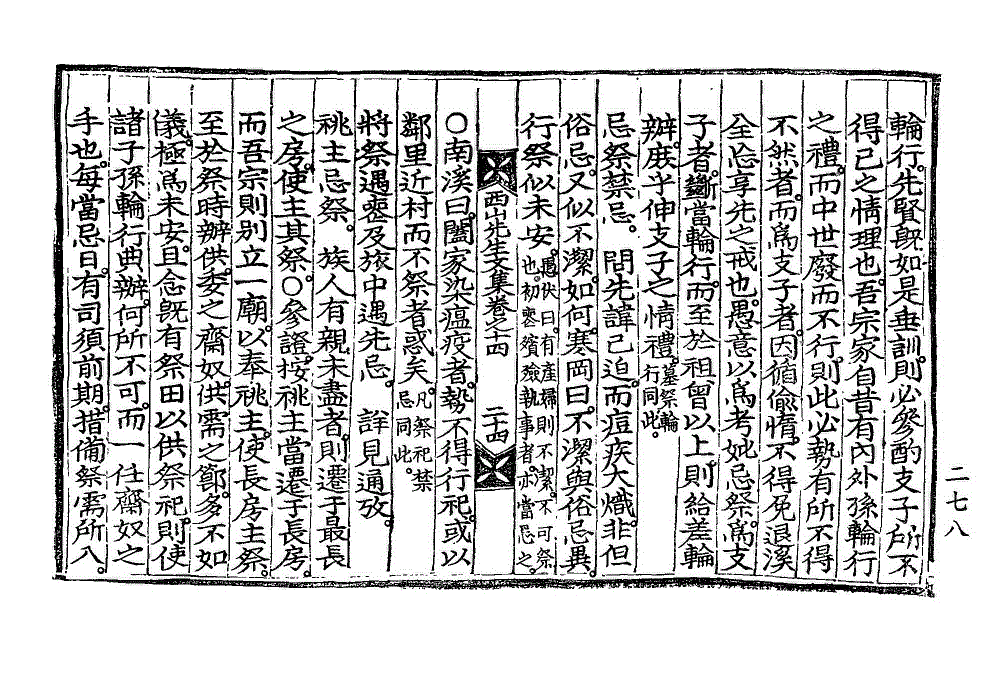 輪行。先賢旣如是垂訓。則必參酌支子所不
得已之情理也。吾宗家自昔有內外孫輪行
之禮。而中世廢而不行。則此必勢有所不得
不然者。而爲支子者。因循偸惰。不得免退溪
全忘享先之戒也。愚意以爲考妣忌祭。爲支
子者。斷當輪行。而至於祖曾以上。則給差輪
辦。庶乎伸支子之情禮。墓祭輪行同此。
忌祭禁忌。 問先諱已迫。而痘疾大熾。非但
俗忌。又似不潔。如何。寒岡曰。不潔與俗忌異。
行祭似未安。愚伏曰。有產婦則不潔。不可祭也。初喪殯殮執事者。亦當忌之。
西山先生文集卷之十四 二十四
○南溪曰。闔家染瘟疫者。勢不得行祀。或以
鄰里近村而不祭者惑矣。凡祭祀禁忌同此。
將祭遇喪及旅中遇先忌 詳見通攷。
祧主忌祭。 族人有親未盡者。則遷于最長
之房。使主其祭。○參證。按祧主當遷于長房。
而吾宗則别立一廟。以奉祧主。使長房主祭。
至於祭時辦供。委之齋奴。供需之節。多不如
儀。極爲未安。且念旣有祭田以供祭祀。則使
諸子孫輪行典辦。何所不可。而一任齋奴之
手也。每當忌日。有司須前期措備祭需所入。
二七八